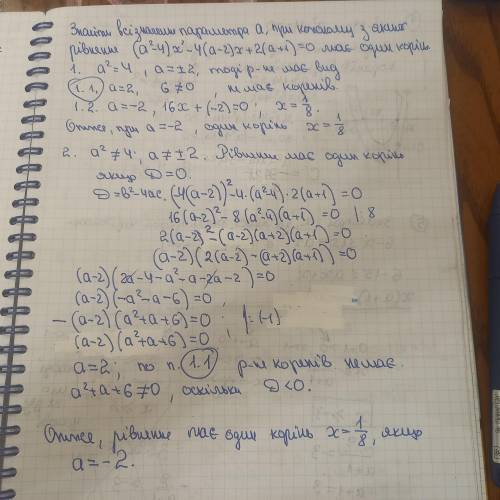 Знайти всі значення параметра a, при кожному з яких
рівняння (a²-4)x²-4(a-2)x+2(a+1)=0 має один корінь
1. a²=4, a=±2, тоді р-ня має вид
1.1, a=2, 6≠0, немає коренів.
1.2. a=-2, 16x+(-2)=0; x=1/8.
Отже, при a=-2, один корінь x=1/8
2. a²≠4. a≠±2. Рівняння має один корінь
якщо D=0.
D=b²-4ac. (-4(a-2))²-4·(a²-4)·2(a+1)=0
16(a-2)²-8(a²-4)(a+1)=0 |:8
2(a-2)²-(a-2)(a+2)(a+1)=0
(a-2)(2(a-2)-(a+2)(a+1))=0
(a-2)(2a-4-a²-a-2a-2)=0
(a-2)(-a²-a-6)=0;
-(a-2)(a²+a+6)=0; |:(-1)
(a-2)(a²+a+6)=0;
a=2; по п. 1.1 р-ня коренів немає.
a²+a+6≠0, оскільки D<0.
Отже, рівняння має один корінь x=1/8, якщо
a=-2.